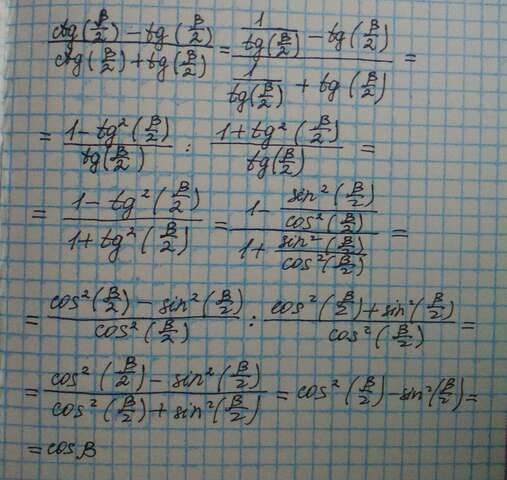 (ctg(β/2) − tg(β/2))/(ctg(β/2) + tg(β/2)) = (1/tg(β/2) − tg(β/2))/(1/tg(β/2) + tg(β/2)) =
= (1 − tg²(β/2))/tg(β/2) : (1 + tg²(β/2))/tg(β/2) =
= (1 − tg²(β/2))/(1 + tg²(β/2)) = (1 − sin²(β/2)/cos²(β/2))/(1 + sin²(β/2)/cos²(β/2)) =
= (cos²(β/2) − sin²(β/2))/cos²(β/2) : (cos²(β/2) + sin²(β/2))/cos²(β/2) =
= (cos²(β/2) − sin²(β/2))/(cos²(β/2) + sin²(β/2)) = cos²(β/2) − sin²(β/2) =
= cosβ